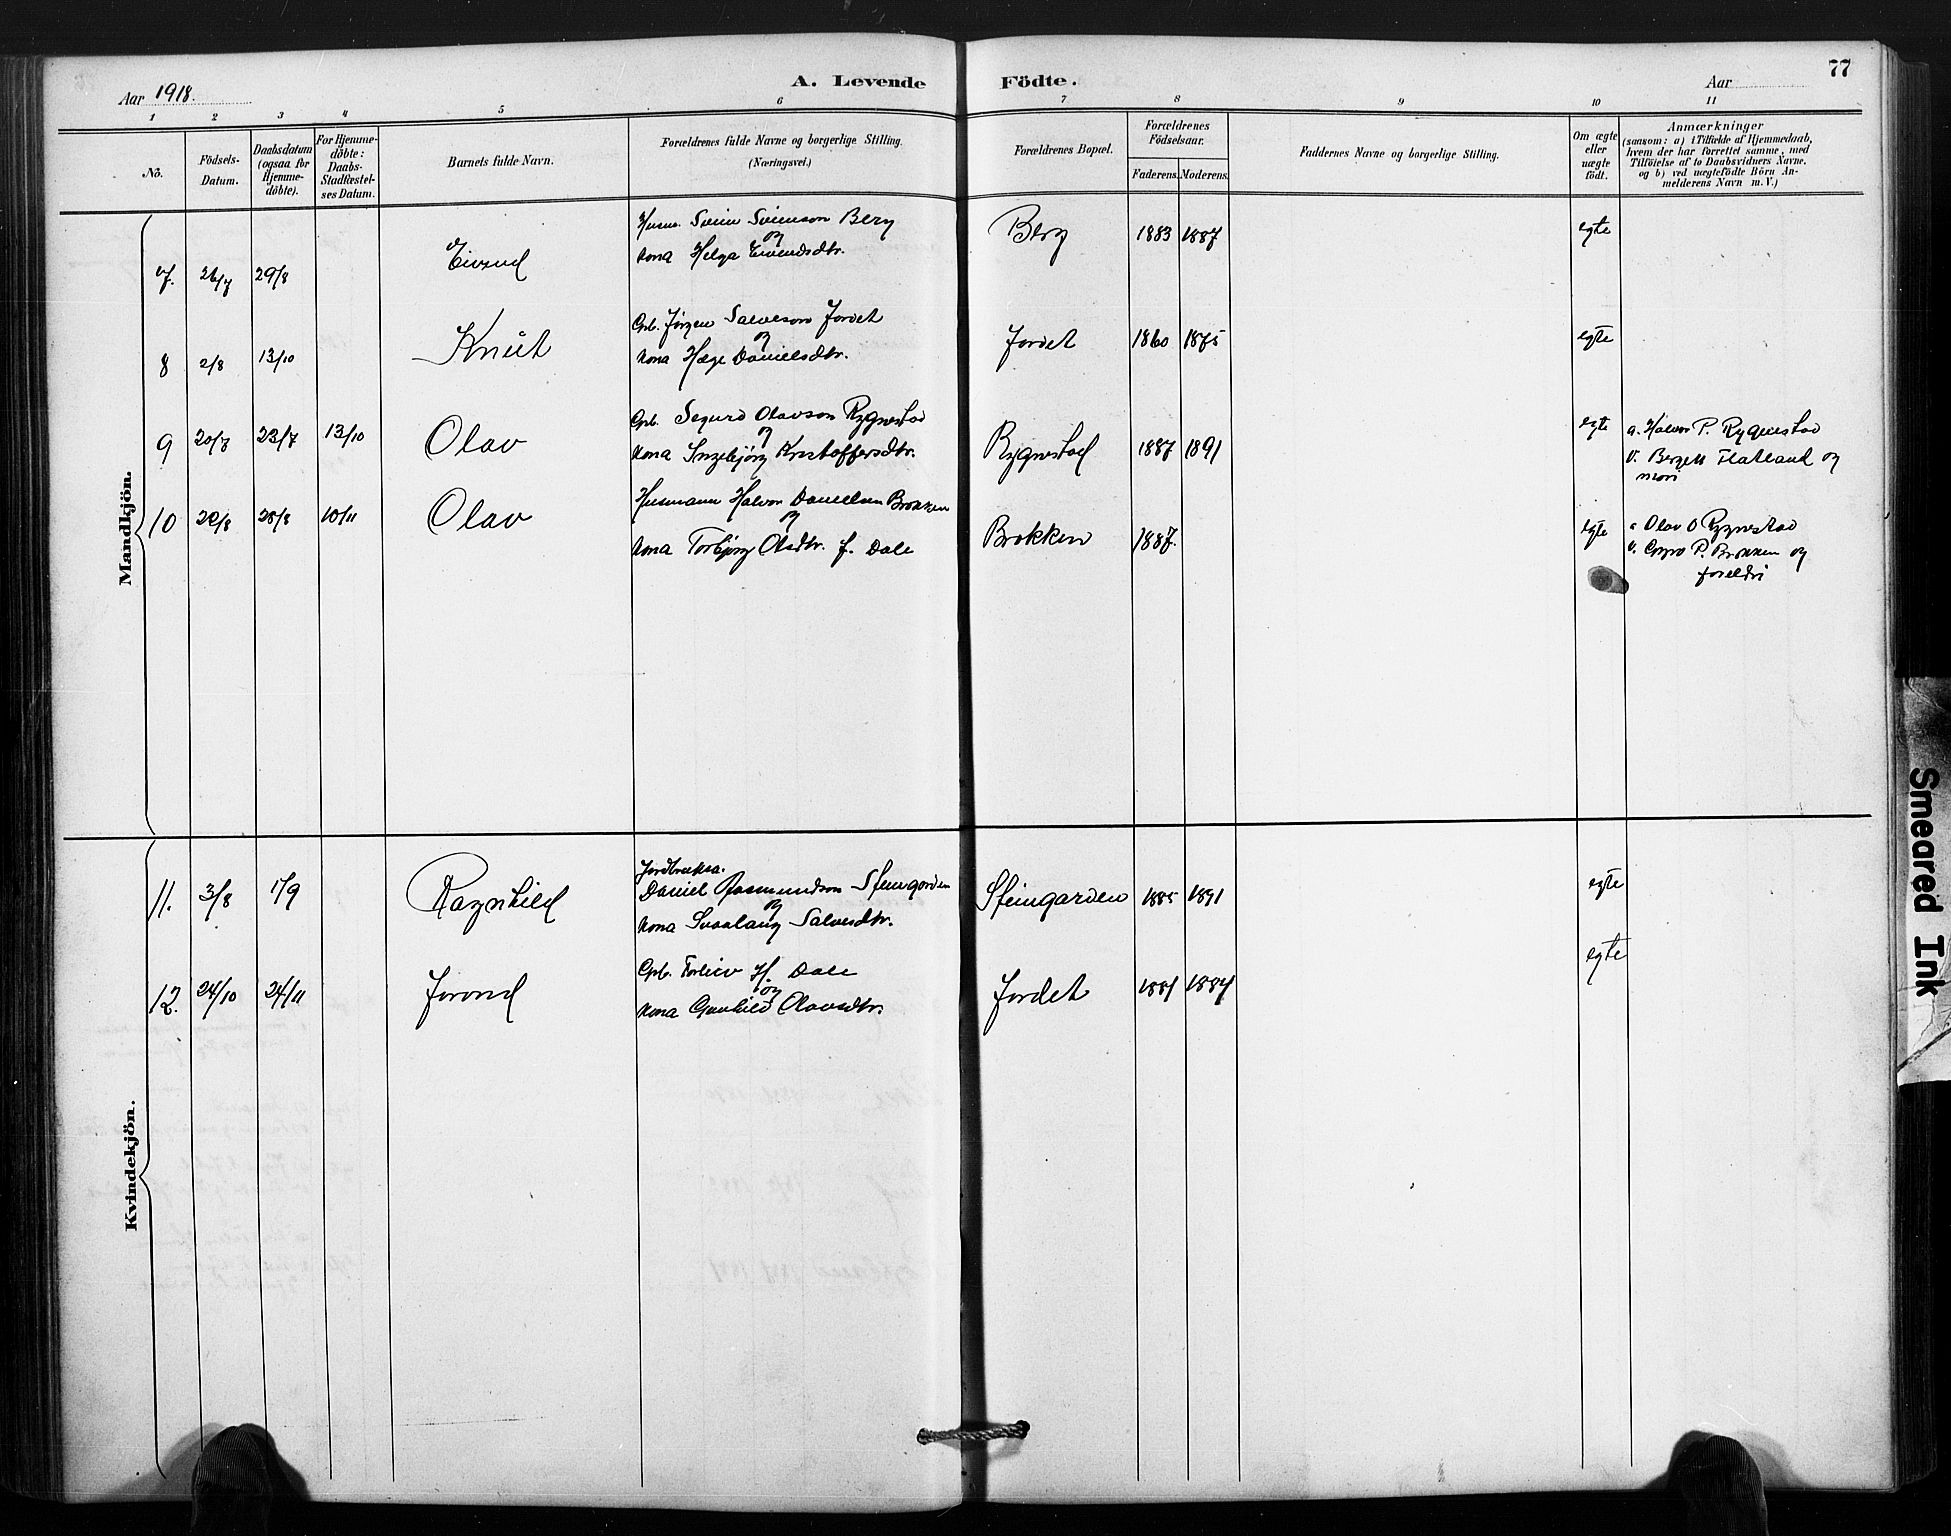 Aar 1918.
A. Levende Födte.
Aar
77
1 2 3 4 5 6 7 8 9 10 11
No.
Födsels-Datum.
Daabsdatum (ogsaa for Hjemme-döbte).
For Hjemme-döbte: Daabs-Stadfæstel-ses Datum.
Barnets fulde Navn.
Forældrenes fulde Navne og borgerlige Stilling.
(Næringsvei.)
Forældrenes Bopæl.
Forældrenes Födselsaar.
Faderens. Moderens.
Faddernes Navne og borgerlige Stilling.
Om ægte eller uægte födt.
Anmærkninger
(saasom: a) i Tilfælde af Hjemmedaab,
hvem der har forrettet samme, med
Tilföielse af to Daabsvidners Navne.
og b) ved uægtefödte Börn An-
melderens Navn m. V.)
Mandkjön.
Husm. Svein Sveinson Berg
og
7. 26/7 29/8 Eivind kona Helga Eivindsdtr. Berg 1883 1887 egte
Gbr. Jørgen Salveson Jordet
og
8 2/8 13/10 Knut kona Hæge Danielsdtr. Jordet 1860 1875 egte
Gbr. Sigurd Olavson Rygnestad
og
9 20/7 23/7 13/10 Olav kona Ingebjørg Kristoffersdtr. Rygnestad 1887 1891 egte
a. Halvor P. Rygnestad
v. Bergit Flatland og
mori
Husmann Halvor Danielsen Brokken
og
10 22/8 28/8 10/11 Olav kona Torbjørg Olsdtr. f. Dale Brokken 1887. egte
a Olav O Rygnestad
v. Gyro P. Brokken og
foreldri
Kvindekjön.
Jordbrukar.
Daniel Aasmundson Steingarden
og
11. 3/8 1/9 Ragnhild kona Svaalaug Salvesdtr. Steingarden 1885 1891 egte
Gbr. Torleiv H. Dale
og
12. 24/10 24/11 Jorond kona Gunhild Olavsdtr. Jordet 1881 1884 egte
Smeared Ink